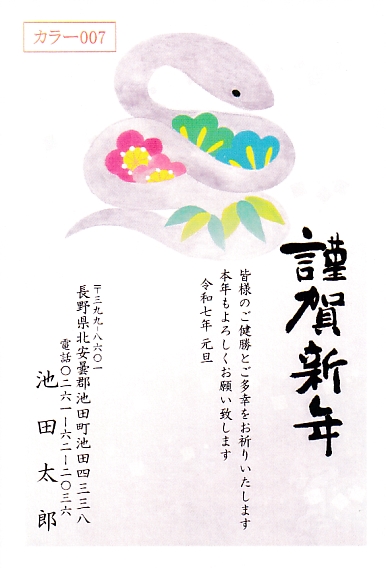 カラー007
謹賀新年
皆様のご健勝とご多幸をお祈りいたします
本年もよろしくお願い致します
令和七年 元旦
〒三九九ー八六〇一
長野県北安曇郡池田町池田四三三八
電話〇二六一ー六二ー二〇三六
池田太郎